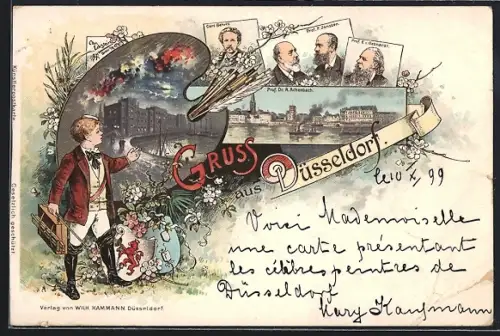 Carl Gehrts.
Prof. P. Janssen.
Prof. E. v. Gebhardt.
Prof. Dr. A. Achenbach.
GRUSS
aus Düsseldorf.
Le 10 X 99
Voici Mademoiselle
une carte présentant
les célèbres peintres de
Düsseldorf
Mary Kaufmann
Gesetzlich geschützt
Verlag von WILH. HAMMANN Düsseldorf.